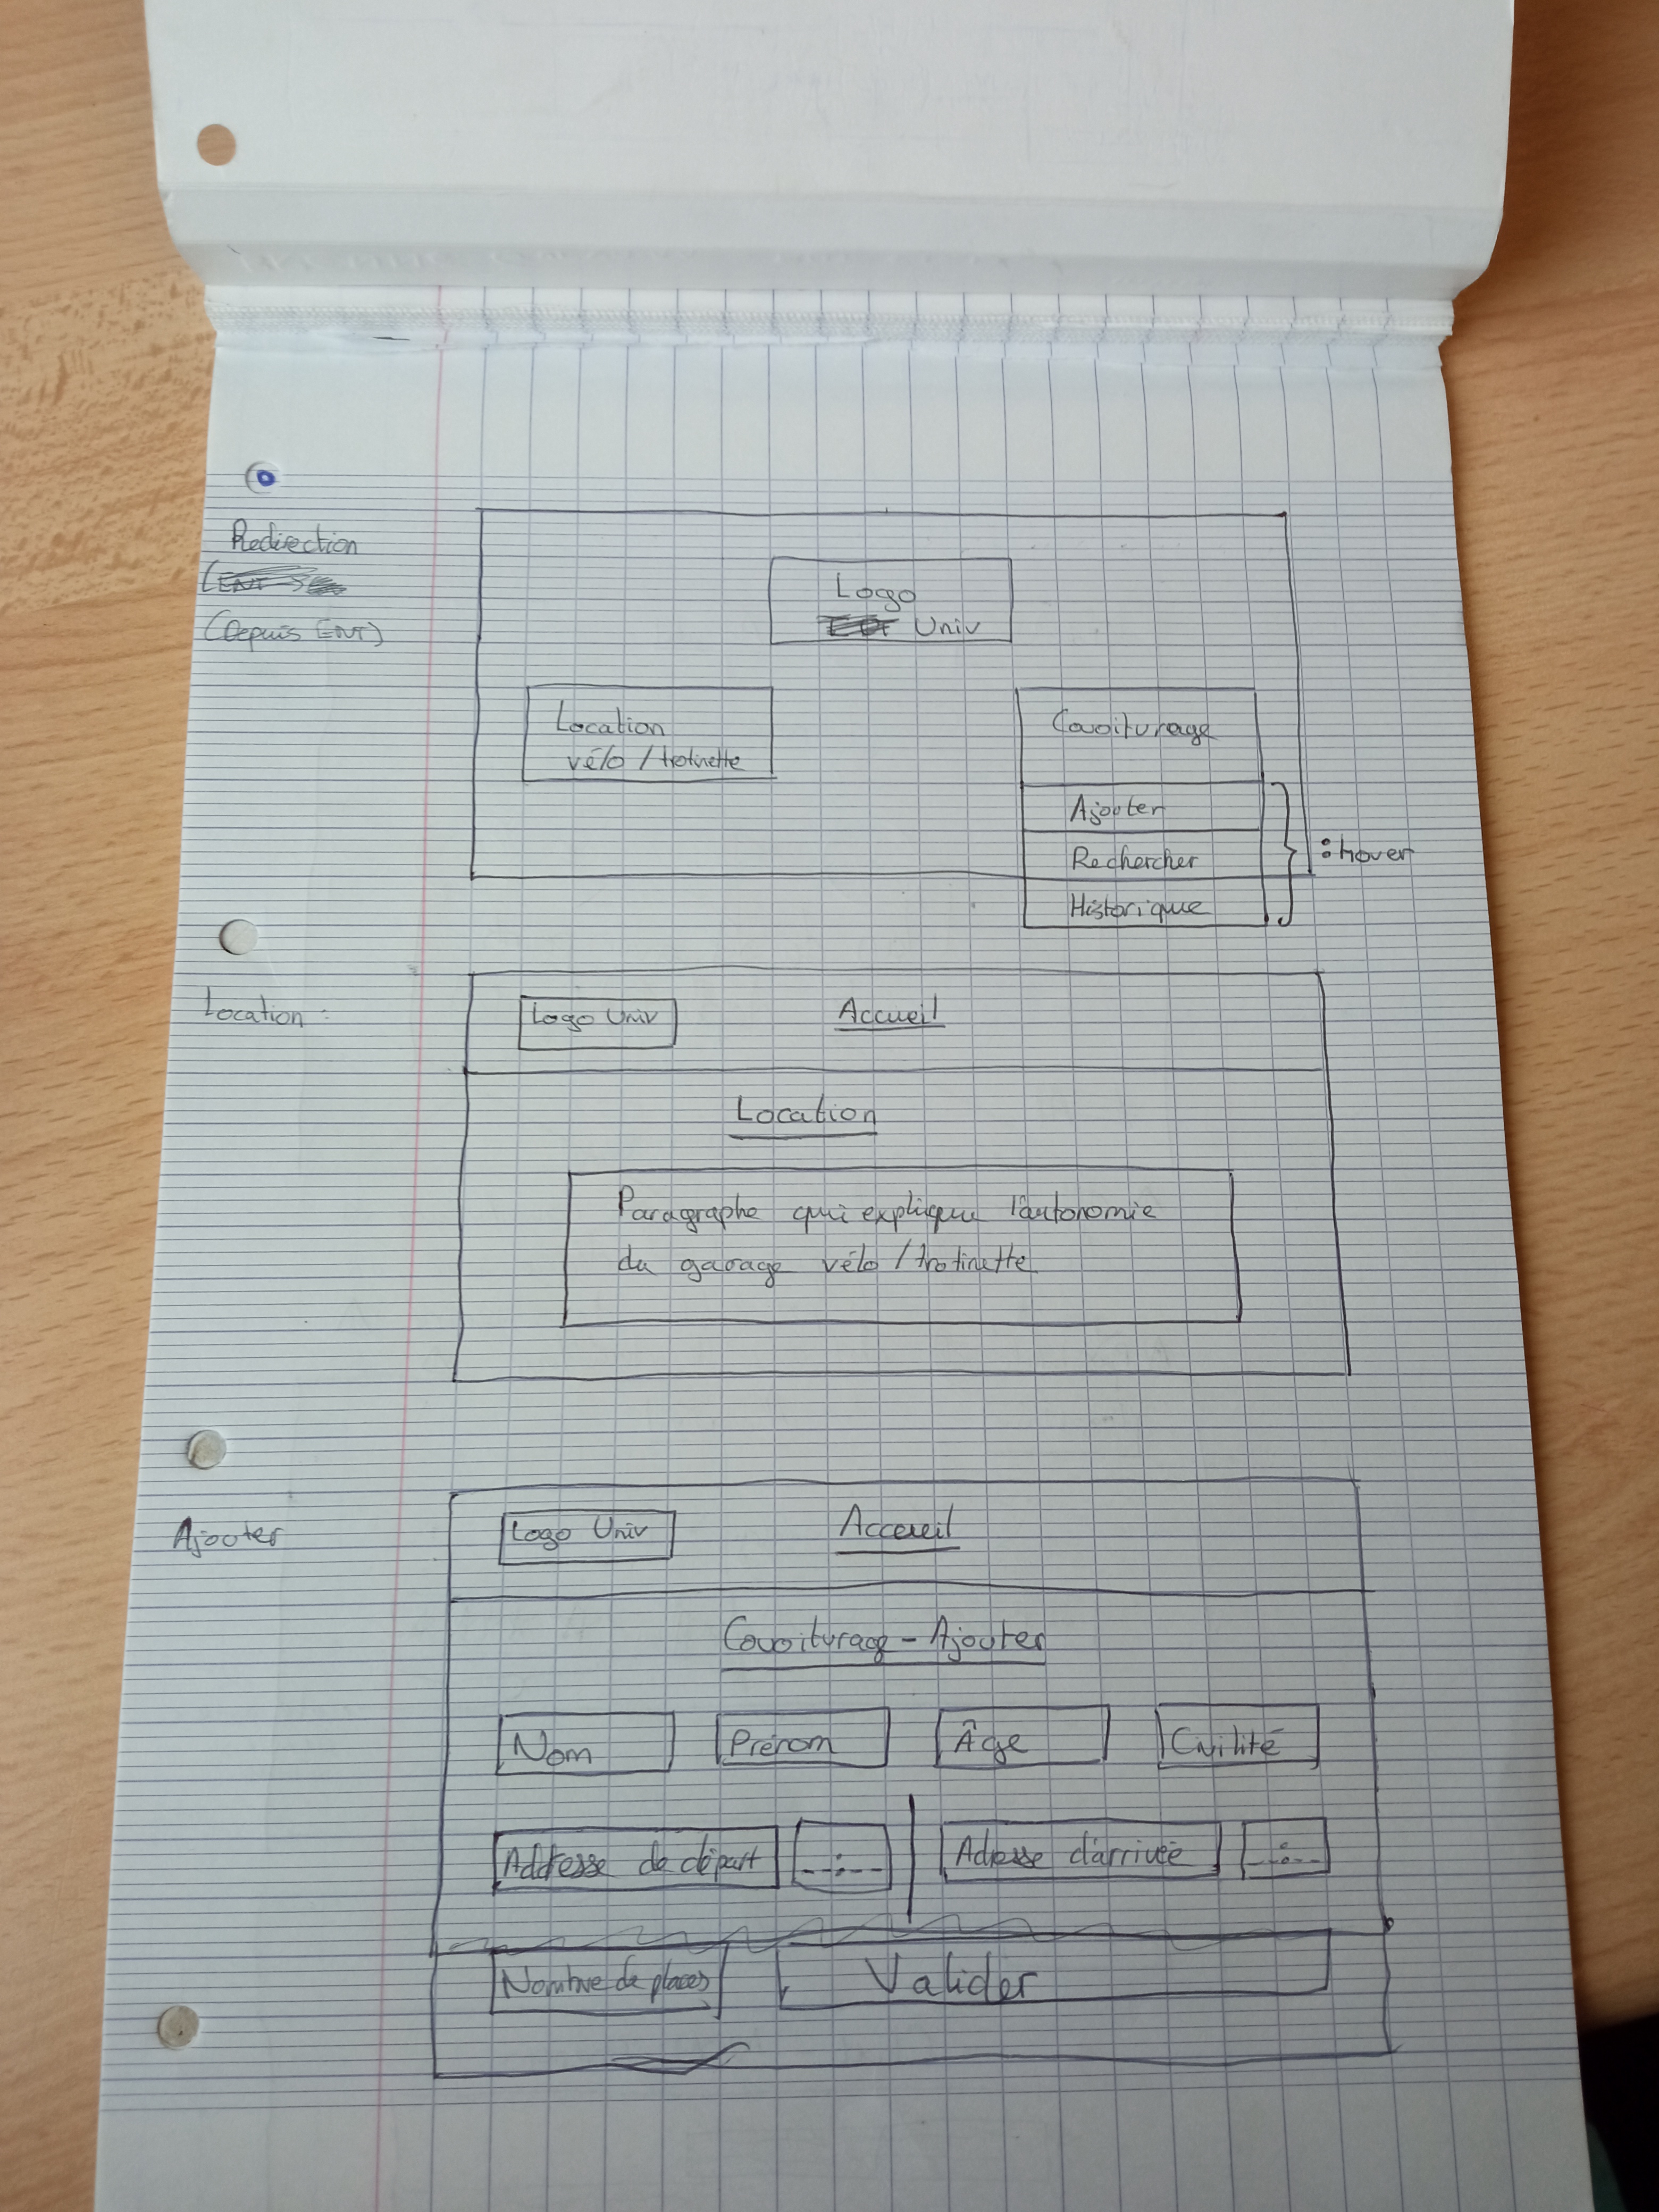 Redirection
(Depuis ENT)
Logo
Univ
Location
vélo / trotinette
Covoiturage
Ajouter
Rechercher
Historique
:hover
Location :
Logo Univ
Accueil
Location
Paragraphe qui explique l'autonomie
du garage vélo / trotinette
Ajouter
Logo Univ
Accueil
Covoiturage - Ajouter
Nom
Prénom
Âge
Civilité
Addresse de départ
--:--
Adresse d'arrivée
--:--
Nombre de places
Valider